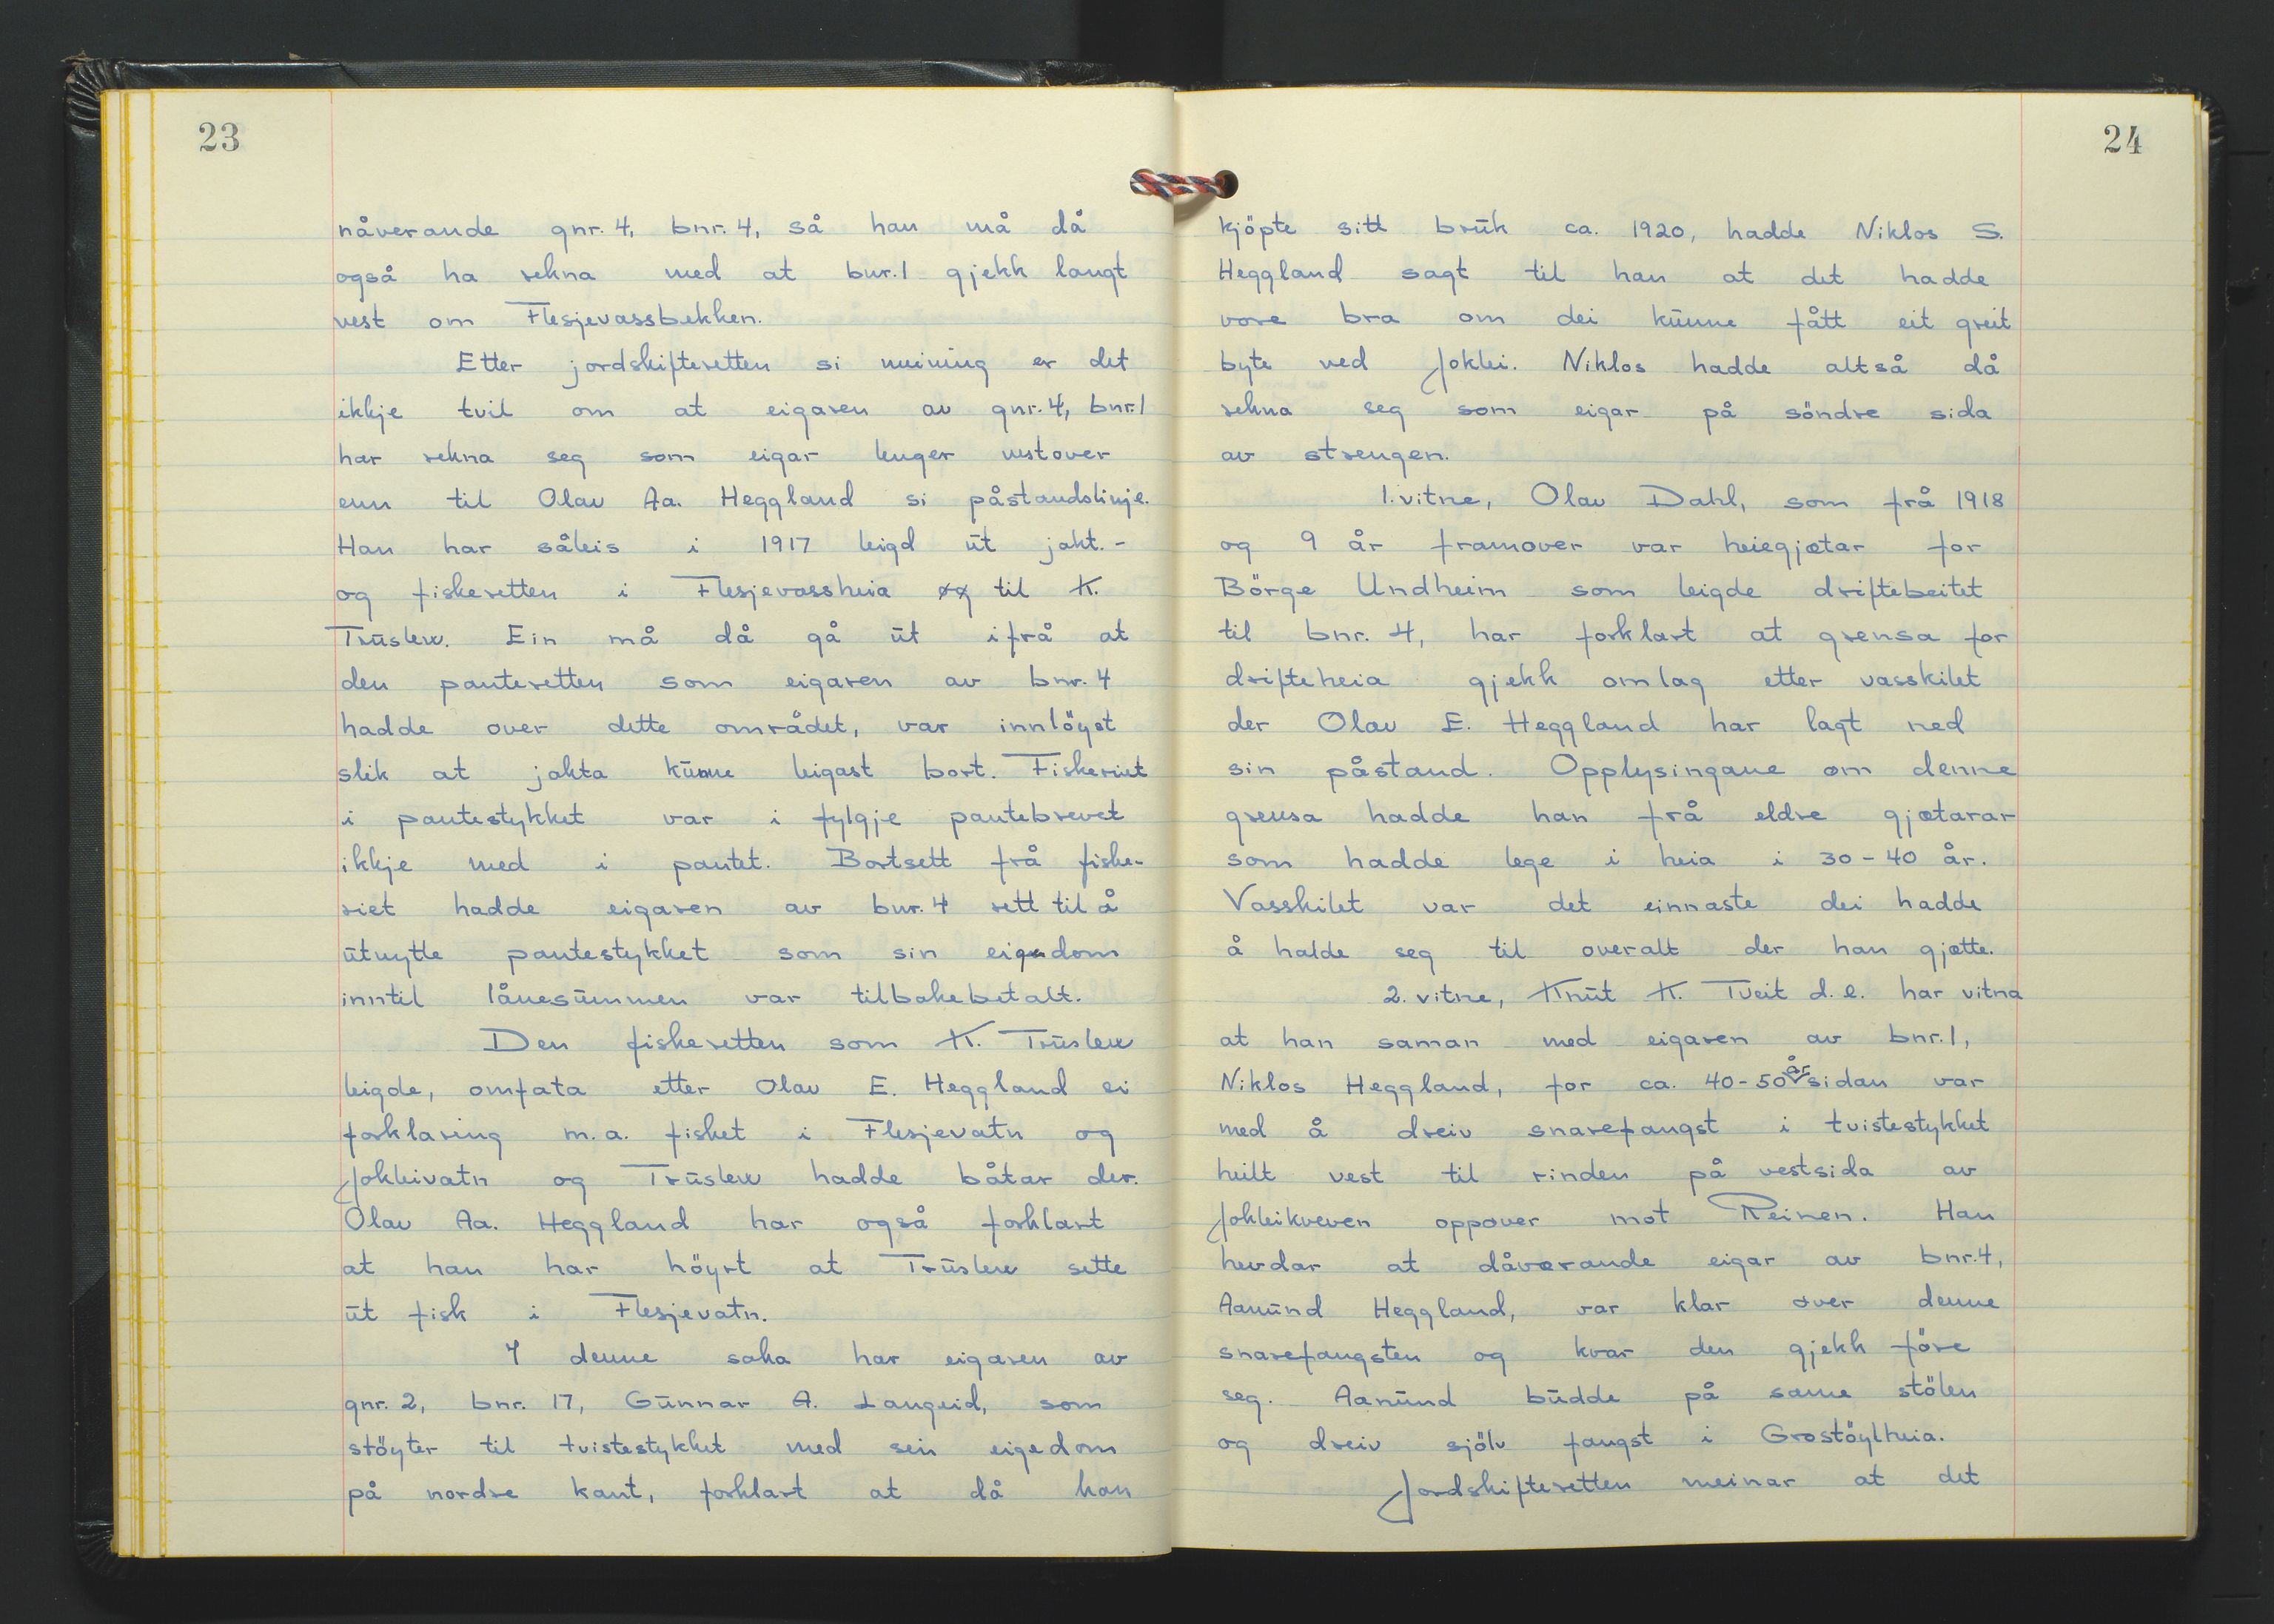 23
nåverande gnr. 4, bnr. 4, så han må då
også ha rekna med at bnr. 1 gjekk langt
vest om Flesjevassbekken.
Etter jordskifteretten si meining er det
ikkje tvil om at eigaren av gnr. 4, bnr. 1
har rekna seg som eigar lenger vestover
enn til Olav Aa. Heggland si påstandslinje.
Han har såleis i 1917 leigd ut jakt.-
og fiskeretten i Flesjevassheia og til K.
Truslew. Ein må då gå ut ifrå at
den panteretten som eigaren av bnr. 4
hadde over dette området, var innlöyst
slik at jakta kunne leigast bort. Fiskeriet
i pantestykket var i fylgje pantebrevet
ikkje med i pantet. Bortsett frå fiske-
riet hadde eigaren av bnr. 4 rett til å
utnytte pantestykket som sin eigedom
inntil lånesummen var tilbakebetalt.
Den fiskeretten som K. Truslew
leigde, omfata etter Olav E. Heggland si
forklaring m.a. fisket i Flesjevatn og
Jokleivatn og Truslew hadde båtar der.
Olav Aa. Heggland har også forklart
at han har höyrt at Truslew sette
ut fisk i Flesjevatn.
I denne saka har eigaren av
gnr. 2, bnr. 17, Gunnar A. Langeid, som
stöyter til tvistestykket med sin eigedom
på nordre kant, forklart at då han
24
kjöpte sitt bruk ca. 1920, hadde Niklos S.
Heggland sagt til han at det hadde
vore bra om dei kunne fått eit greit
byte ved Joklei. Niklos hadde altså då
rekna seg som eigar på söndre sida
av strengen.
1. vitne, Olav Dahl, som frå 1918
og 9 år framover var heiegjætar for
Börge Undheim som leigde driftebeitet
til bnr. 4, har forklart at grensa for
drifteheia gjekk omlag etter vasskilet
der Olav E. Heggland har lagt ned
sin påstand. Opplysingane om denne
grensa hadde han frå eldre gjætarar
som hadde lege i heia i 30-40 år.
Vasskilet var det einnaste dei hadde
å halde seg til overalt der han gjætte.
2. vitne, Knut K. Tveit d.e. har vitna
at han saman med eigaren av bnr. 1,
Niklos Heggland, for ca. 40-50 år sidan var
med å dreiv snarefangst i tvistestykket
heilt vest til rinden på vestsida av
Jokleikveven oppover mot Reinen. Han
hevdar at dåverande eigar av bnr. 4,
Aanund Heggland, var klar over denne
snarefangsten og kvar den gjekk före
seg. Aanund budde på same stölen
og dreiv sjölv fangst i Grostöylheia.
Jordskifteretten meinar at det